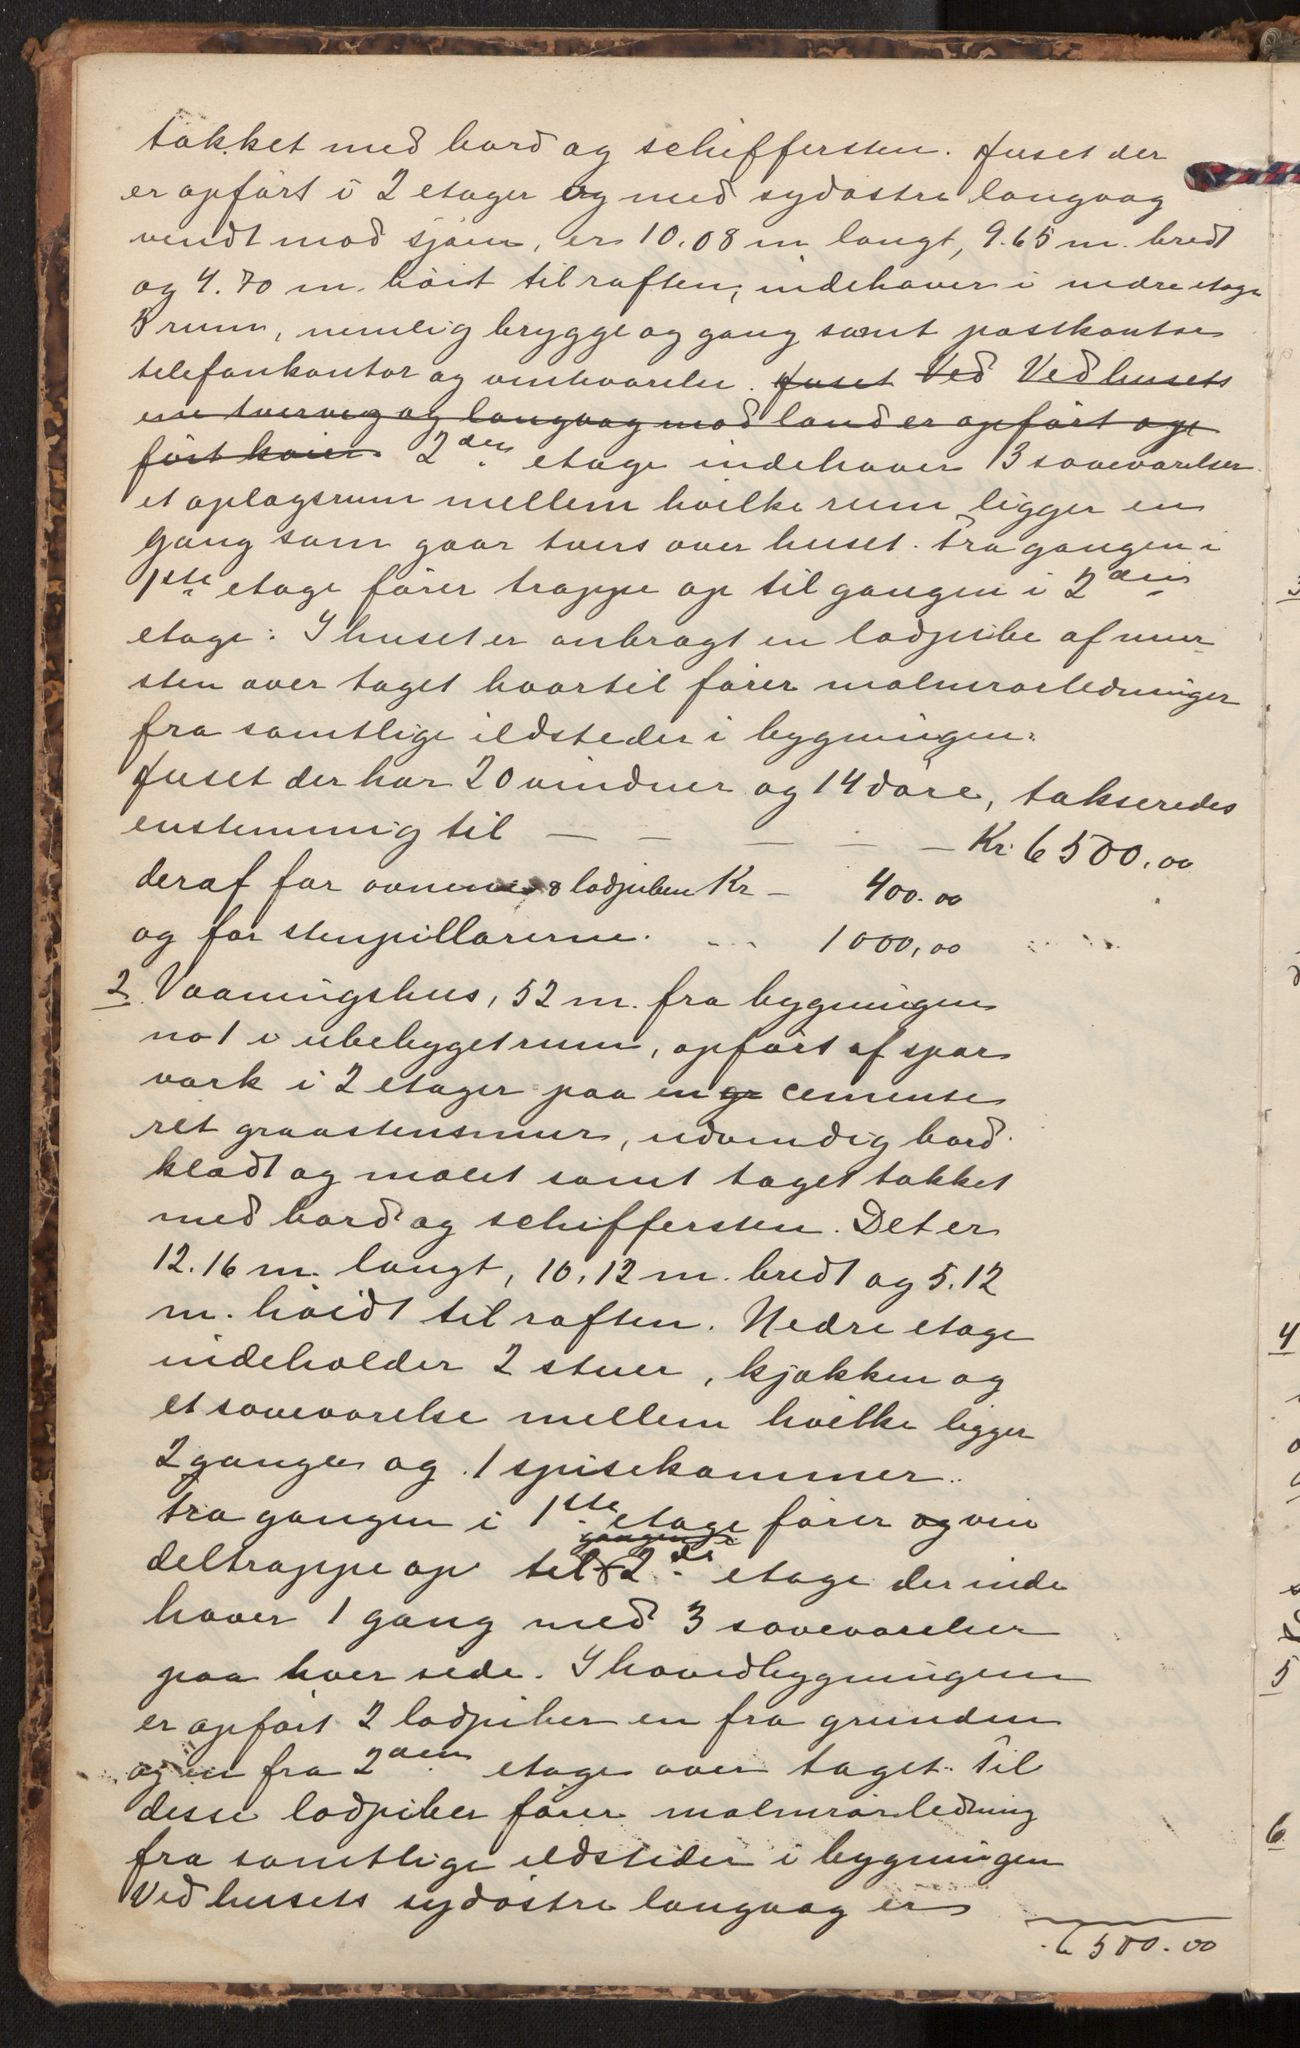 takket med bord og schiffersten. Huset der
er opført i 2 etager og med sydøstre langvæg
vendt mod sjøen, er 10.08 m langt, 9.65 m. bredt
og 4.70 m. høit til raften, indehaver i nedre etage
5 rum, nemlig brygge og gang samt postkontor
telefonkontor og venteværelse. Huset Ved Ved husets
ene tvervæg og langvæg mod land er opført opf
ført kaier. 2den etage indehaver 3 soveværelser
et oplagsrum mellem hvilke rum ligger en
gang som gaar tvers over huset. Fra gangen i
1ste etage fører trappe op til gangen i 2den
etage. I huset er anbragt en lodpibe af mur
sten over taget hvortil fører malmrørledninger
fra samtlige ildsteder i bygningen.
Huset der har 20 vinduer og 14 døre, takseredes
enstemmig til — — — — — Kr. 6500.00
deraf for ovnene & lodpiben Kr — 400.00
og for stenpillarerne. - - - 1000,00
2. Vaaningshus, 52 m. fra bygningen
no 1 i ubebygetrum, opført af spær
værk i 2 etager paa en gr cemente
ret graastensmur, udvendig bord
klædt og malet samt taget tækket
med bord og schiffersten. Det er
12.16 m. langt, 10.12 m. bredt og 5.12
m. høidt til raften. Nedre etage
indeholder 2 stuer, kjøkken og
et soveværelse mellem hvilke ligger
2 gange og 1 spisekammer.
Fra gangen i 1ste etage fører og vin
gangen i
deltrappe op til 2de etage der inde
haver 1 gang med 3 soveværelser
paa hver side. I hovedbygningen
er opført 2 lodpiber en fra grunden
og en fra 2den etage over taget. Til
disse lodpiber fører malmrørledning
fra samtlige ildsteder i bygningen
Ved husets sydøstre langvæg er
6500.00
3
4
5
6